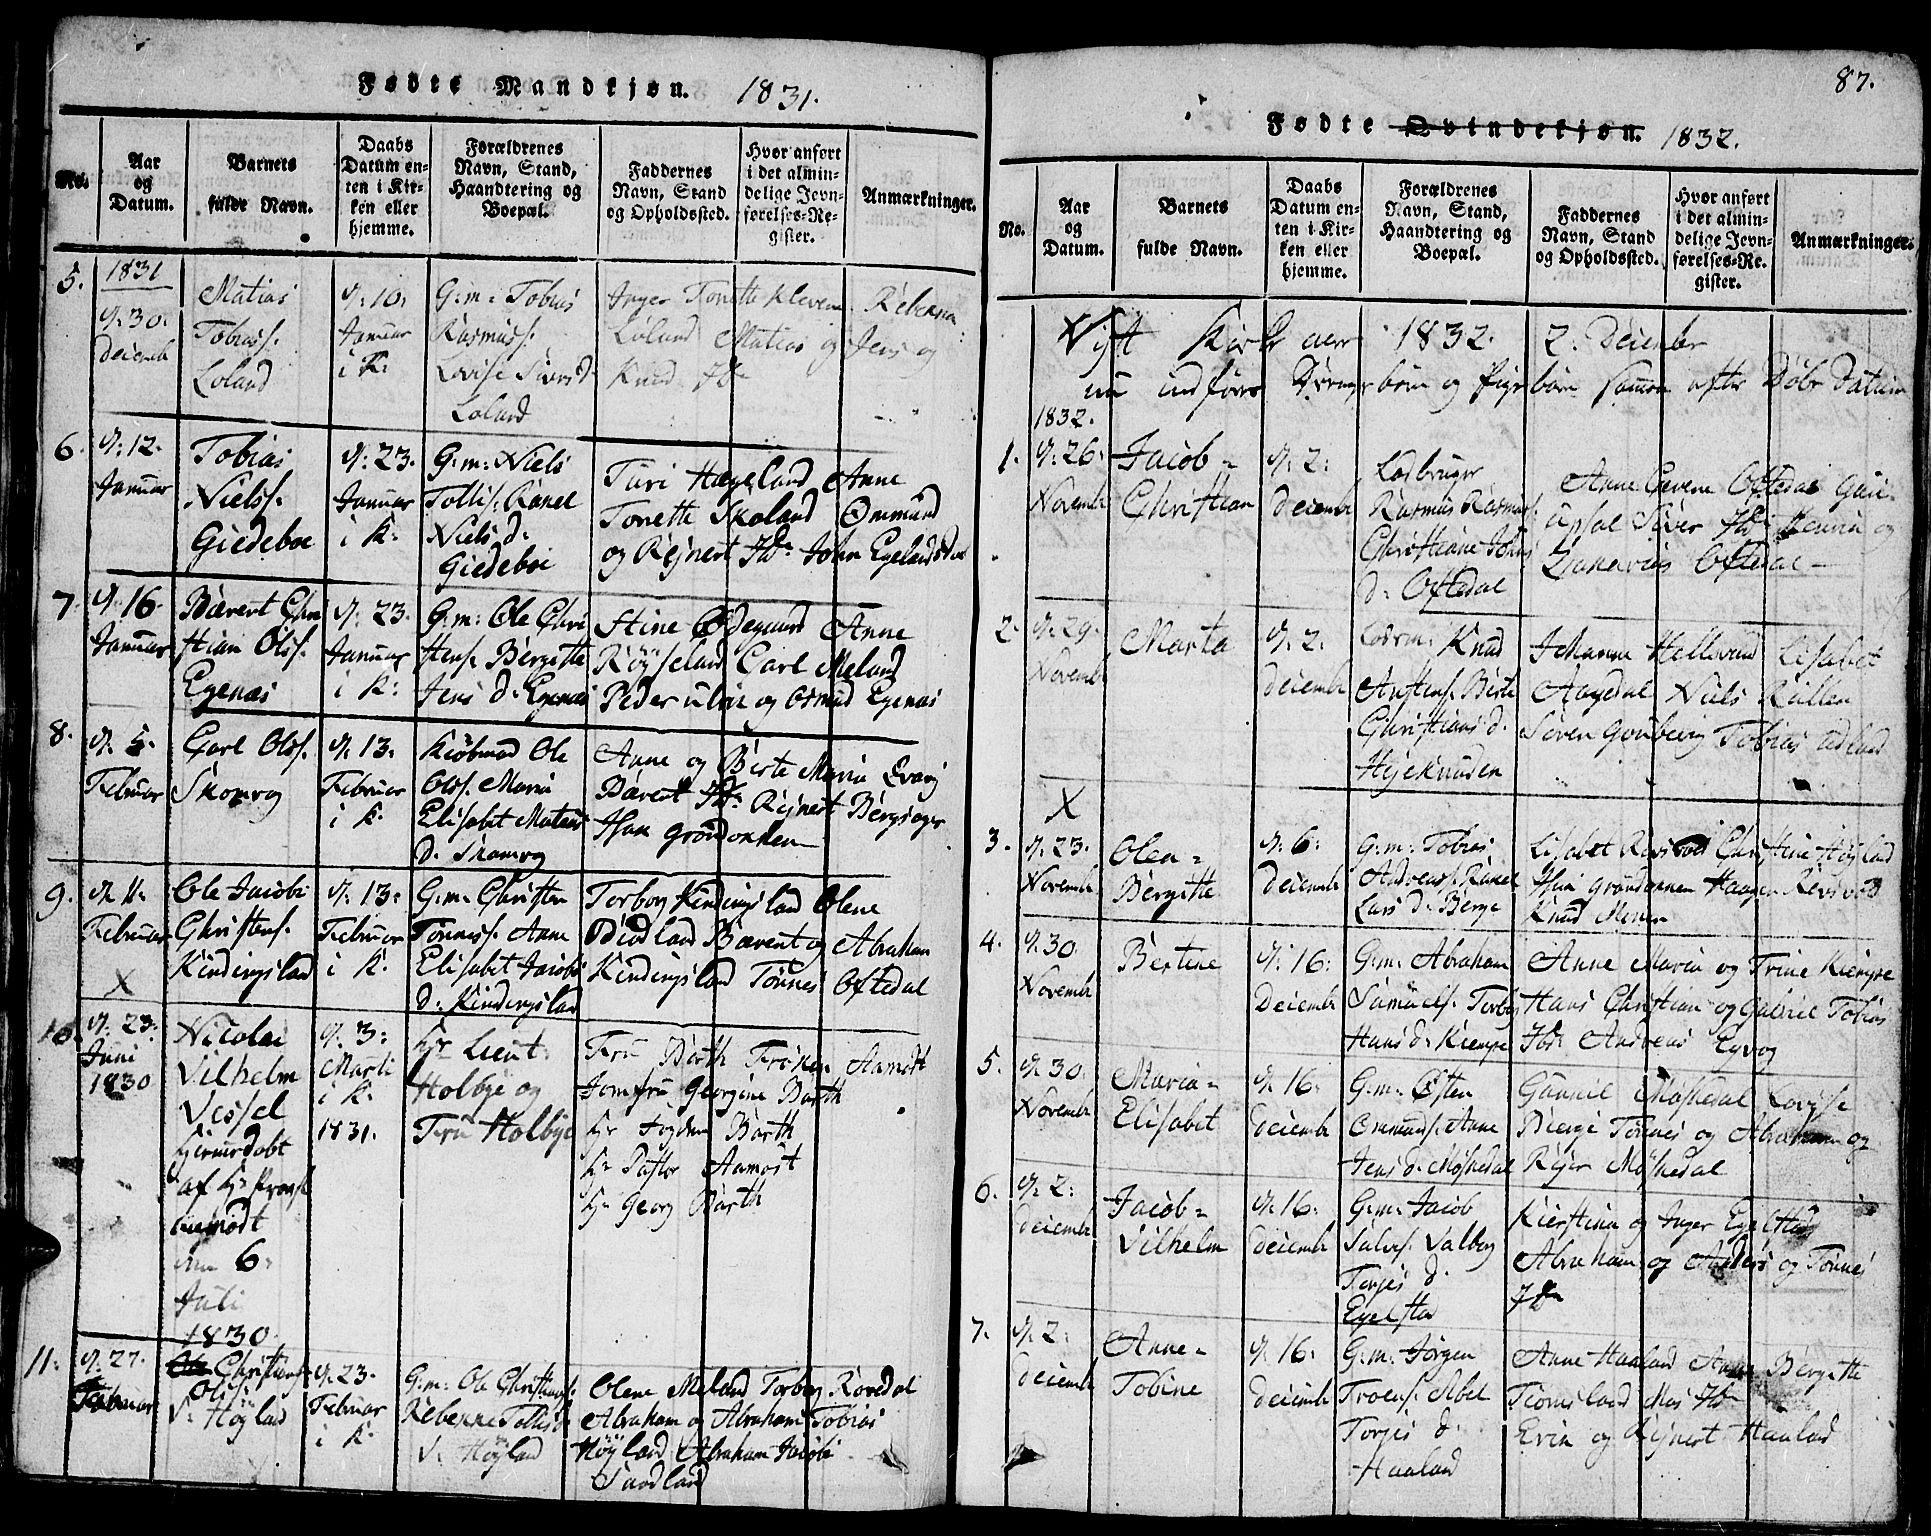 Fødte Mandkjøn. 1831.
No.
Aar og Datum.
Barnets fulde Navn.
Daabs Datum enten i Kirken eller hjemme.
Forældrenes Navn, Stand, Haandtering og Boepæl.
Faddernes Navn, Stand og Opholdssted.
Hvor anført i det almindelige Jevnførelses-Register.
Anmærkninger.
5.
1831
d. 30.
Decemb
Matias
Tobiass.
Loland
d. 10:
Januar
i K:
G:m: Tobias
Rasmuss.
Lovise Sivers d.
Loland
Inger Tonette Kleven Rebecca
Loland Matias og Jens og
Knud Ibd
6.
d. 12.
Januar
Tobias
Nielss.
Giedeboe
d. 23.
Januar
i K:
G:m: Niels
Tollis. Ranel
Niels d:
Giedeboe
Turi Hægeland Anne
Tonette Skoland Ommund
og Rejnert Ibd: John Egelandsdal
7.
d. 16
Januar
Bærent Chri
stian Olss.
Egenæs
d. 23.
Januar
i K:
G:m: Ole Chri
stens. Bergitte
Jens d: Egenæs
Stine Ødegaard Anne
Röysland Carl Meland
Peder Ulvie og Osmud Egenæs
8.
d. 5.
Februar
Carl Olss.
Skomrog
d. 13:
Februar
i K.
Kiöbmand Ole
Olss. Maria
Elisabet Matias
d. Skomrog
Anne og Birte Maria Qvavig
Bærent Ibd: Rejnert Bergsager
Isak Grøndokken
9.
d. 11.
Februar
X
Ole Jacobi
Christens.
Kindingsland
d. 13:
Februar
i K.
G:m: Christen
Tønness. Anne
Elisabet Jacobs
d. Kindingsland
Torborg Kindingsland Olene
Ødland Bærent og Abraham
Kindingsland Tönnes Oftedal
10.
d. 23:
Juni
1830
Nicolai
Vilhelm
Vessel
hjemmedøbt
af Hr Provst
Aamodt
den 6:
Juli
1830
d. 3:
Marti
i K:
1831.
Hr Lieut:
Holbye og
Fru Holbye
Fru Barth Frøken Aamodt
Jomfru Georgine Barth
Hr Fogden Barth
Hr Pastor Aamodt
Hr Georg Barth
11:
d. 27.
Februar
Ole Christian
Olss.
S. Höyland
d. 23.
Februar
i K.
G:m: Ole Christians.
Rebecca Tollis d
S. Höyland
Olene Meland Torborg Rovedal
Abraham og Abraham Tobias
Höyland Abraham Jacobs
Sandland
87.
Fødte Qvindekjøn. 1832.
No.
Aar og Datum.
Barnets fulde Navn.
Daabs Datum enten i Kirken eller hjemme.
Forældrenes Navn, Stand, Haandtering og Boepæl.
Faddernes Navn, Stand og Opholdssted.
Hvor anført i det almindelige Jevnførelses-Register.
Anmærkninger.
Nyt Kirke aar 1832. 2. Decembr
nu indføres Drengebørn og Pigebørn sammen efter Døbe Datum
1832.
1.
d. 26:
Novemb
Jacob-
Christian
d. 2:
Decemb
Ladbruger
Rasmus Rasmus.
Christiane Johns
d. Oftedal
Anne Gurine Oftedal Guri
Opsal Siver Ibd: Henrik og
Zakarias Oftedal
2.
d. 29.
Novemb
Marta
d. 2:
Decemb
Knud
Anstens. Birte
Christians d.
Hejeknuden
Johanne Hellevand Lisabet
Aagedal Niels Rullen
Søren Gonbierg Tobias Udland
X
3.
d. 23.
Novemb
Olea-
Bergitte
d. 6:
Decemb
G:m: Tobias
Andreas. Ranel
Lars d. Berge
Lisabet Revsvold Christine Höyland
Isak Grøndokken Haagen Revsvold
Knud Moren
4.
d. 30.
Novemb
Bertine
d. 16:
Decemb
G:m: Abraham
Samuels. Torbor
Hans d. Kiempe
Anne Maria og Trine Kiempe
Hans Christian og Gabriel Tobias
Ibd: Andreas Eyvog
5.
d. 30.
Novemb
Maria-
Elisabet
d. 16:
Decemb
G:m: Østen
Ommunds. Anne
Jens d. Möskedal
Gunnil Möskedal Lovise
Bierge Tönnes og Abraham og
Rejer Möskedal
6.
d. 2:
Decemb
Jacob-
Vilhelm
d. 16:
Decemb
G:m: Jacob
Salves. Valborg
Terjes d.
Egelstad
Kierstina og Inger Egelstad
Abraham og Anders og Tönnes
Ibd
7.
d. 2:
Decemb
Anne-
Tobine
d. 16:
Decemb
G:m: Jörgen
Troens. Abel
Torjes d.
Haaland
Anne Haaland Anne Bergitte
Tiomsland Mos Ibd
Even og Rejnert Haaland